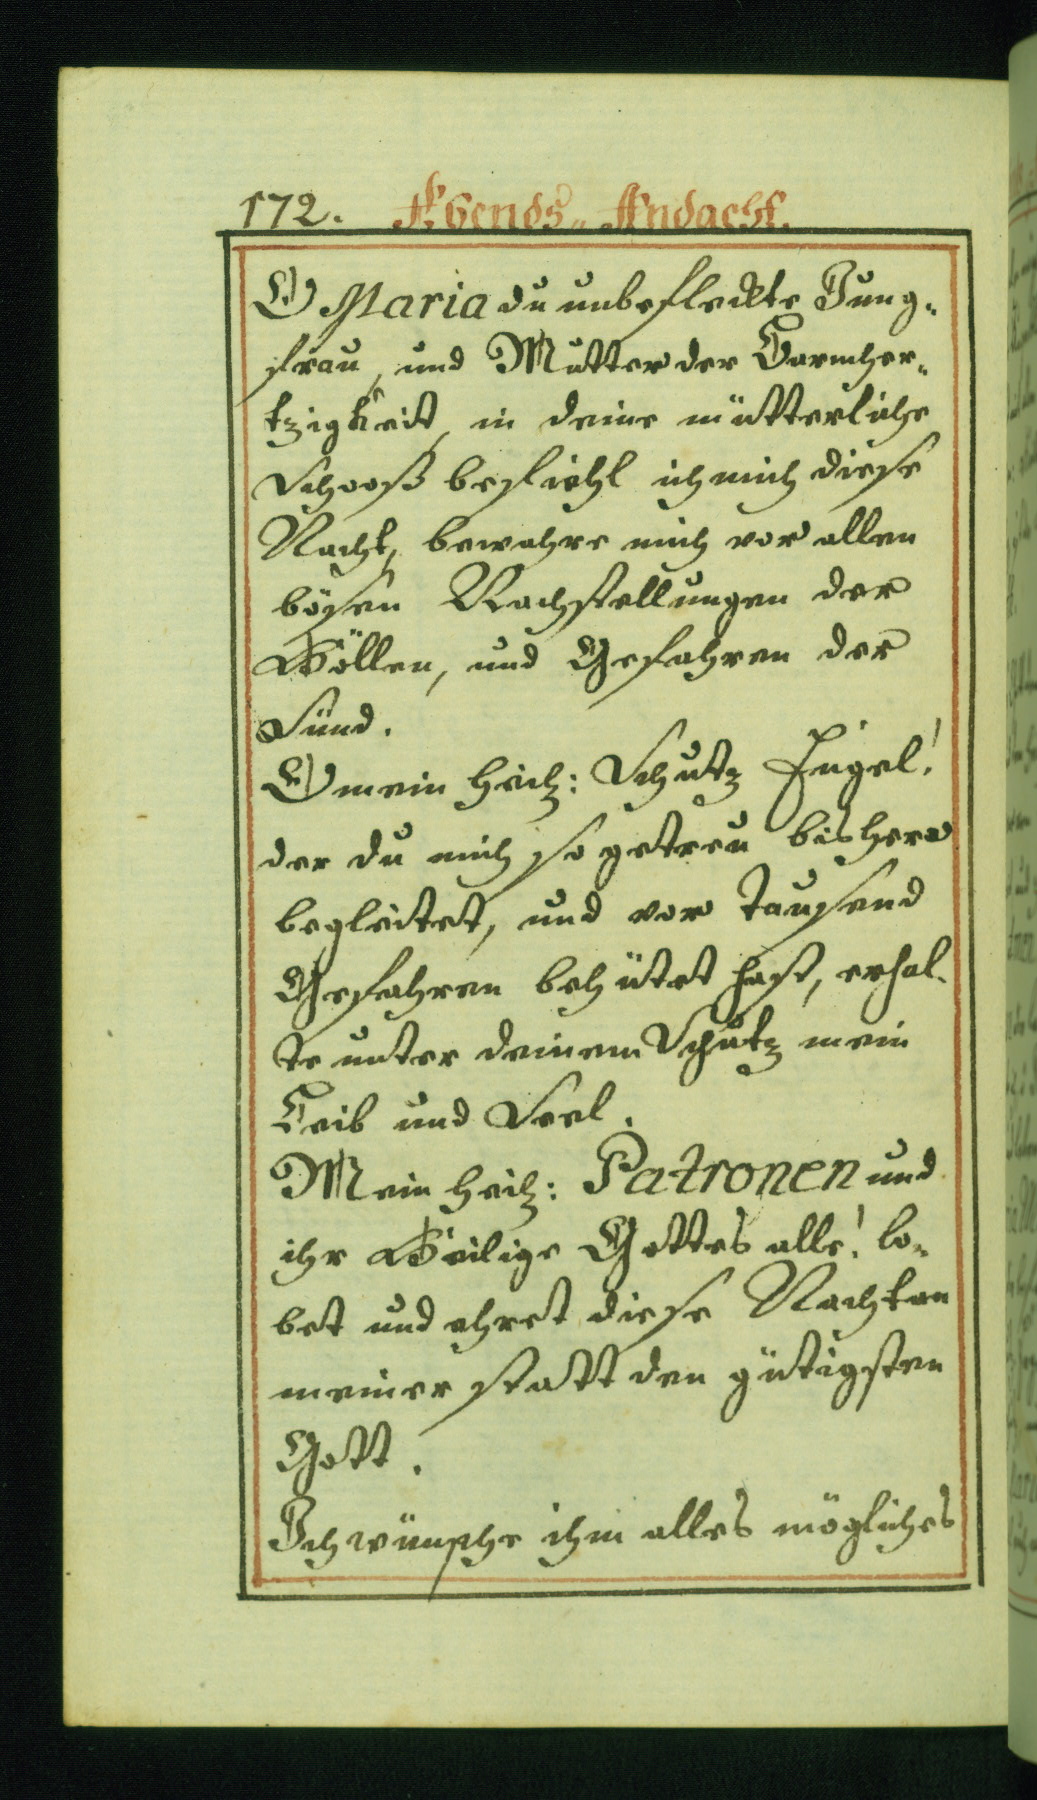 172. Abends-Andacht.
O Maria du unbefleckte Jung-
frau, und Mutter der Barmher-
tzigkeit, in deine mütterliche
Schooß befiehl ich mich diese
Nacht, bewahre mich vor allen
bösen Nachstellungen der
Höllen, und Gefahren der
Sünd.
O mein heil: Schutz Engel!
der du mich so getreu bishero
begleitet, und vor tausend
Gefahren behütet hast, erhal-
te unter deinem Schutz mein
Leib und Seel.
Mein heil: Patronen und
ihr Heilige Gottes alle! lo-
bet und ehret diese Nacht an
meiner statt den gütigsten
Gott.
Ich wünsche ihm alles mögliches